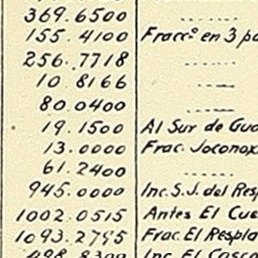 369.6500
155.4100 Fracc° en 3 pa
256.7718
10.8166
80.0400
19.1500 Al Sur de Gua
13.0000 Frac. Joconox
61.2400
945.0000 Inc. S.J. del Resp
1002.0515 Antes El Cue
1093.2795 Frac. El Respla
498.8300 Inc. El Casco